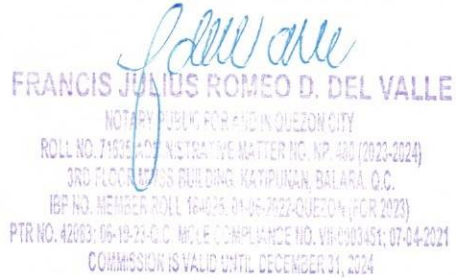 FRANCIS JULIUS ROMEO D. DEL VALLE
NOTARY PUBLIC FOR AND IN QUEZON CITY
ROLL NO. 71835 ADMINISTRATIVE MATTER NO. NP. (2023-2024)
3RD FLOOR BUILDING, KATIPUNAN, BALARA, Q.C.
IBP NO. MEMBER ROLL 01-06-2022-QUEZON (FOR 2023)
PTR NO. 06-19-23-Q.C. MCLE COMPLIANCE NO. 07-04-2021
COMMISSION IS VALID UNTIL DECEMBER 31, 2024